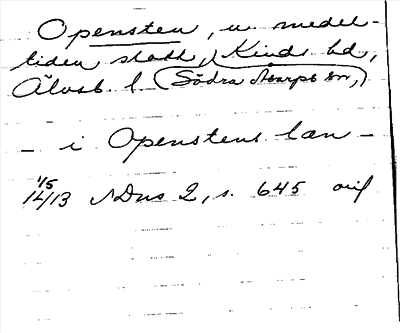 Opensten, u. medel-
tiden slott, Kinds hd,
Älvsb. l. (Södra Åsarps sn,)
- i Openstens län -
1/5
1413 SDns 2, s. 645 avs